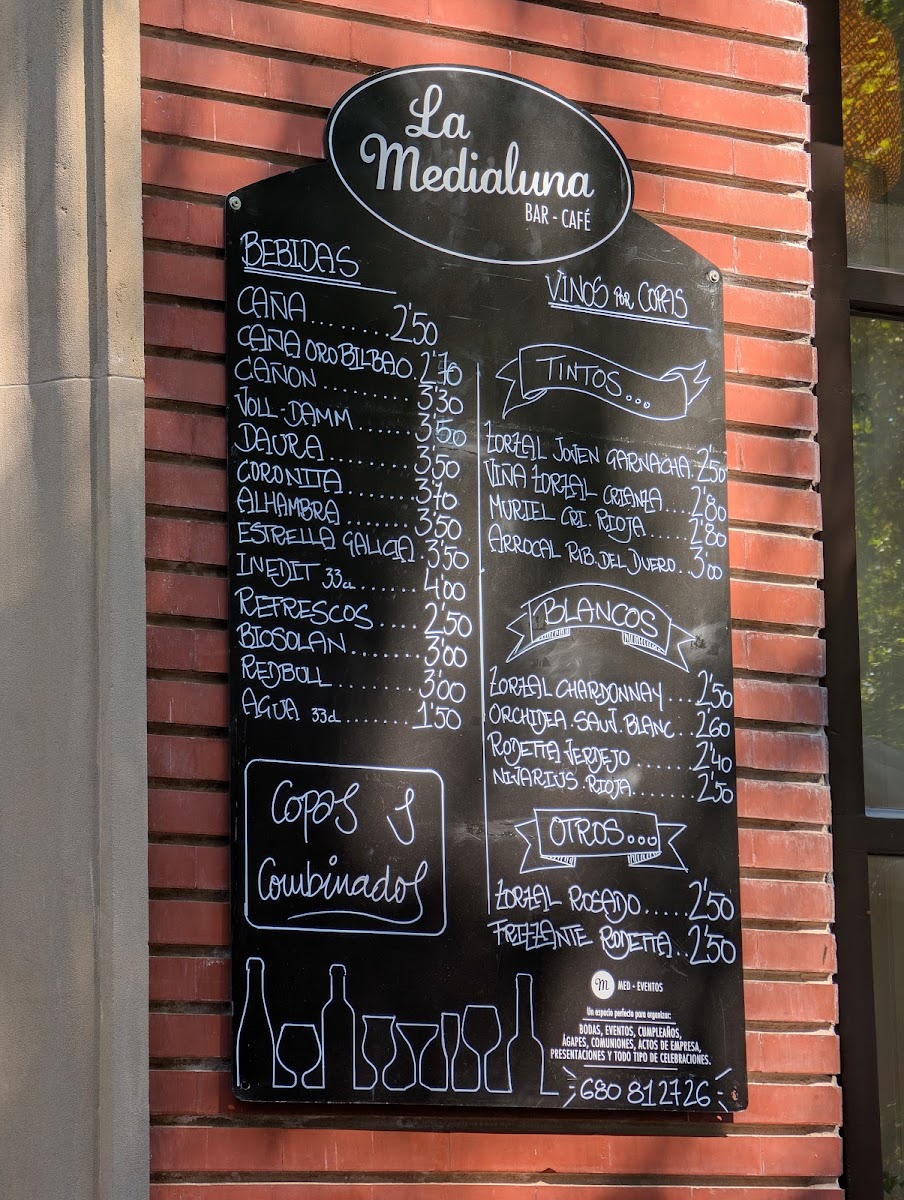 La
Medialuna
BAR - CAFÉ
BEBIDAS
CAÑA........2'50
CAÑA ORO BILBAO.2'70
CAÑON..........3'30
VOLL-DAMM.......3'50
DAURA..........3'50
CORONITA.......3'70
ALHAMBRA.......3'50
ESTRELLA GALICIA.3'50
INEDIT 33CL......4'00
REFRESCOS......2'50
BIOSOLAN.......3'00
REDBULL.........3'00
AGUA 33cl.......1'50
Copas y
Combinados
VINOS POR COPAS
TINTOS...
ZORZAL JOVEN GARNACHA.2'50
VIÑA ZORZAL CRIANZA...2'80
MURIEL CRI. RIOJA....2'80
ARROCAL RIB. DEL DUERO..3'00
BLANCOS
ZORZAL CHARDONNAY...2'50
ORCHIDEA.SAUV.BLANC..2'60
RODETTA VERDEJO......2'40
NIVARIUS.RIOJA.......2'50
OTROS...
ZORZAL ROSADO.....2'50
FRIZZANTE RODETTA..2'50
m. MED - EVENTOS
Un espacio perfecto para organizar:
BODAS, EVENTOS, CUMPLEAÑOS,
ÁGAPES, COMUNIONES, ACTOS DE EMPRESA,
PRESENTACIONES Y TODO TIPO DE CELEBRACIONES.
680 812726